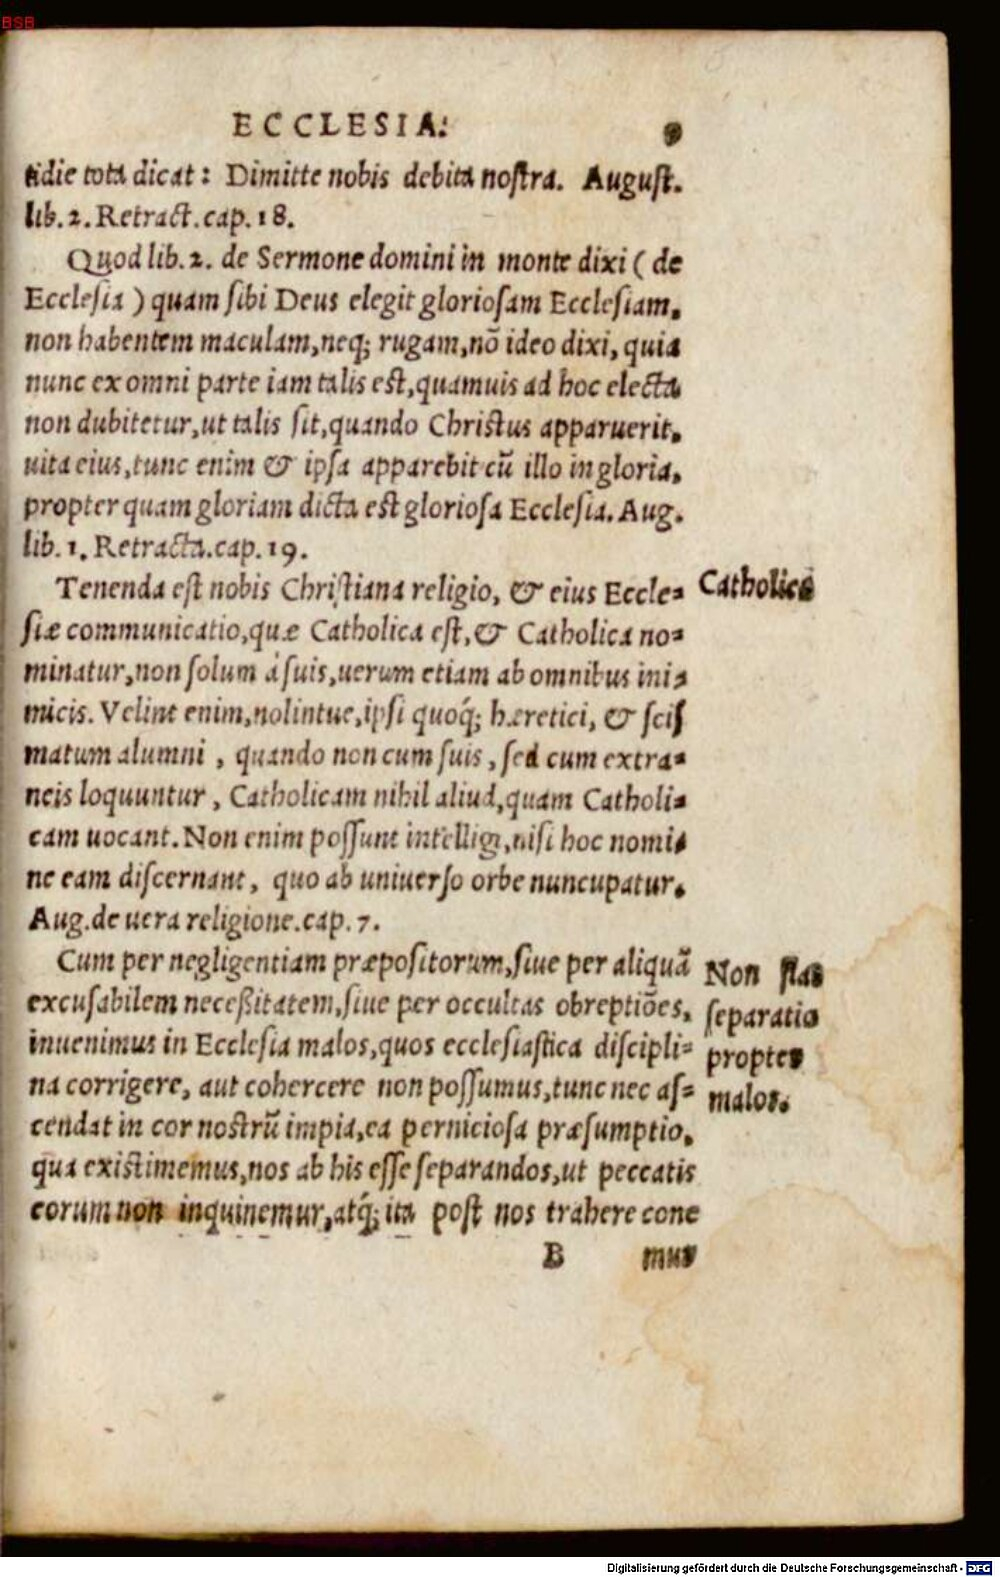 BSB
ECCLESIA. 9
tidie tota dicat: Dimitte nobis debita nostra. August.
lib. 2. Retract. cap. 18.
Quod lib. 2. de Sermone domini in monte dixi (de
Ecclesia) quam sibi Deus elegit gloriosam Ecclesiam,
non habentem maculam, neq; rugam, nõ ideo dixi, quia
nunc ex omni parte iam talis est, quamuis ad hoc electa
non dubitetur, ut talis sit, quando Christus apparuerit,
uita eius, tunc enim & ipsa apparebit cũ illo in gloria,
propter quam gloriam dicta est gloriosa Ecclesia. Aug.
lib. 1. Retracta. cap. 19.
Tenenda est nobis Christiana religio, & eius Eccle=
siæ communicatio, quæ Catholica est, & Catholica no=
minatur, non solum à suis, uerum etiam ab omnibus ini=
micis. Velint enim, nolintue, ipsi quoq́; hæretici, & scis
matum alumni, quando non cum suis, sed cum extra=
neis loquuntur, Catholicam nihil aliud, quam Catholi=
cam uocant. Non enim possunt intelligi, nisi hoc nomi=
ne eam discernant, quo ab uniuerso orbe nuncupatur.
Aug. de uera religione. cap. 7.
Catholica
Cum per negligentiam præpositorum, siue per aliquã
excusabilem neceßitatem, siue per occultas obreptiões,
inuenimus in Ecclesia malos, quos ecclesiastica discipli=
na corrigere, aut cohercere non possumus, tunc nec as=
cendat in cor nostrũ impia, ea perniciosa præsumptio,
qua existimemus, nos ab his esse separandos, ut peccatis
eorum non inquinemur, atq́; ita post nos trahere cone
Non fiat
separatio
propter
malos.
B mur
Digitalisierung gefördert durch die Deutsche Forschungsgemeinschaft - DFG